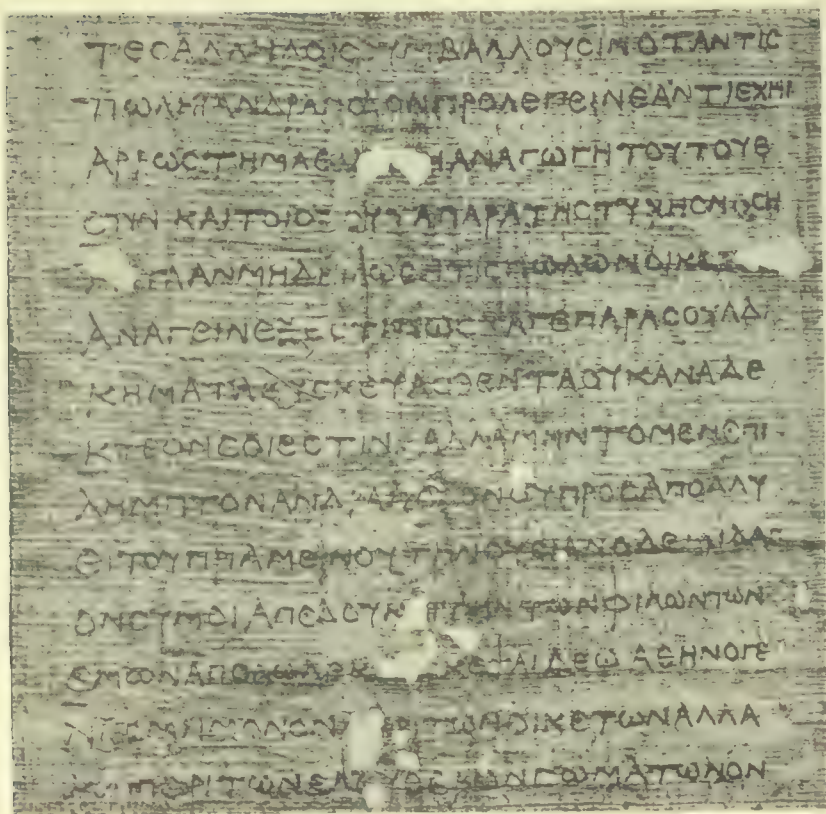 ΤΕСΑΛΛΗΛΟΙС ΥΜΒΑΛΛΟΥСΙΝΟΤΑΝΤΙС
ΠΩΛΗΙΑΝΔΡΑΠΟΔΟΝΠΡΟΛΕΓΕΙΝΕΑΝΤΙΕΧΗΙ
ΑΡΡΩСΤΗΜΑΕ ΗΑΝΑΓΩΓΗΤΟΥΤΟΥΕ
СΤΙΝ ΚΑΙΤΟΙΟΠΟΥΤΑΠΑΡΑΤΗСΤΥΧΗСΝΟСΗ
ΑΝΜΗΔΗΛΩСΗΤΙСΠΩΛΩΝΟΙΚΕ
ΑΝΑΓΕΙΝΕΞΕСΤΙΠΩСΤΑΓΕΠΑΡΑСΟΥΑΔΙ
ΚΗΜΑΤΑ СΥСΚΕΥΑСΘΕΝΤΑΟΥΚΑΝΑΔΕ
ΚΤΕΟΝСΟΙΕСΤΙΝ ΑΛΛΑΜΗΝΤΟΜΕΝΕΠΙ
ΛΗΜΠΤΟΝΑΝΔΡΑΠΟΔΟΝΟΥΠΡΟСΑΠΟΛΛΥ
ΕΙΤΟΥΠΡΙΑΜΕΝΟΥΤΗΝΟΥСΙΑΝΟΔΕΜΙΔΑС
ΟΝСΥΜΟΙΑΠΕΔΟΥΚ ΤΗΝΤΩΝΦΙΛΩΝΤΩΝ
ΕΜΩΝΑΠΟΛΩΛΕΚ ΚΕΨΑΙΔΕΩΑΘΗΝΟΓΕ
ΝΕСΜΗΜΟΝΟΝ ΕΡΙΤΩΝΟΙΚΕΤΩΝΑΛΛΑ
Κ ΠΕΡΙΤΩΝΕΛΕΥΘΕ ΩΝСΩΜΑΤΩΝΟΝ